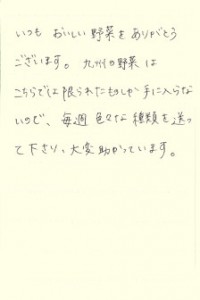 いつも おいしい野菜をありがとう
ございます。九州の野菜は
こちらでは限られたものしか手に入らな
いので、毎週 色々な種類を送っ
て下さり、大変助かっています。